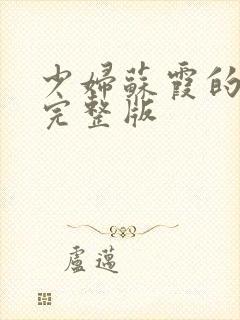 少婦蘇霞的
完整版
盧邁